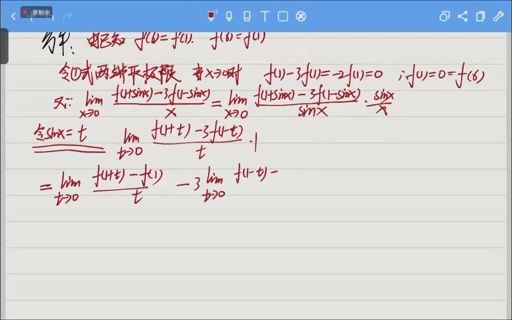 录制中
解: 由已知 f(6)=f(1). f'(6)=f'(1)
令①式两端取极限 当x→0时 f(1)-3f(1)=-2f(1)=0 ∴f(1)=0=f(6)
又∵ lim x→0 f(1+sinx)-3f(1-sinx) / x = lim x→0 f(1+sinx)-3f(1-sinx) / sinx · sinx / x
令sinx=t lim t→0 f(1+t)-3f(1-t) / t ·1
= lim t→0 f(1+t)-f(1) / t -3 lim t→0 f(1-t)-